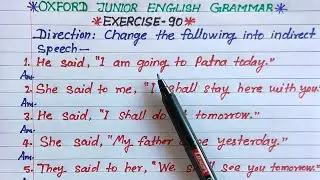 *OXFORD JUNIOR ENGLISH GRAMMAR*
*EXERCISE-90*
Direction: Change the following into indirect
Speech—
1. He said, "I am going to Patna today."
Ans-
2. She said to me, "I shall stay here with you."
Ans-
3. He said, "I shall do it tomorrow."
Ans-
4. She said, "My father yesterday."
Ans-
5. They said to her, "We shall see you tomorrow."